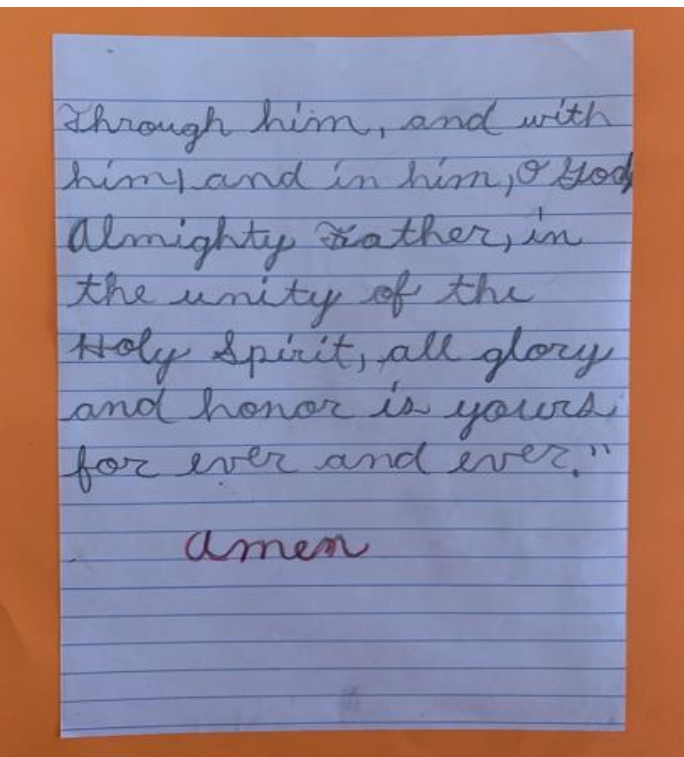 Through him, and with
him, and in him, O God,
Almighty Father, in
the unity of the
Holy Spirit, all glory
and honor is yours
for ever and ever."
Amen